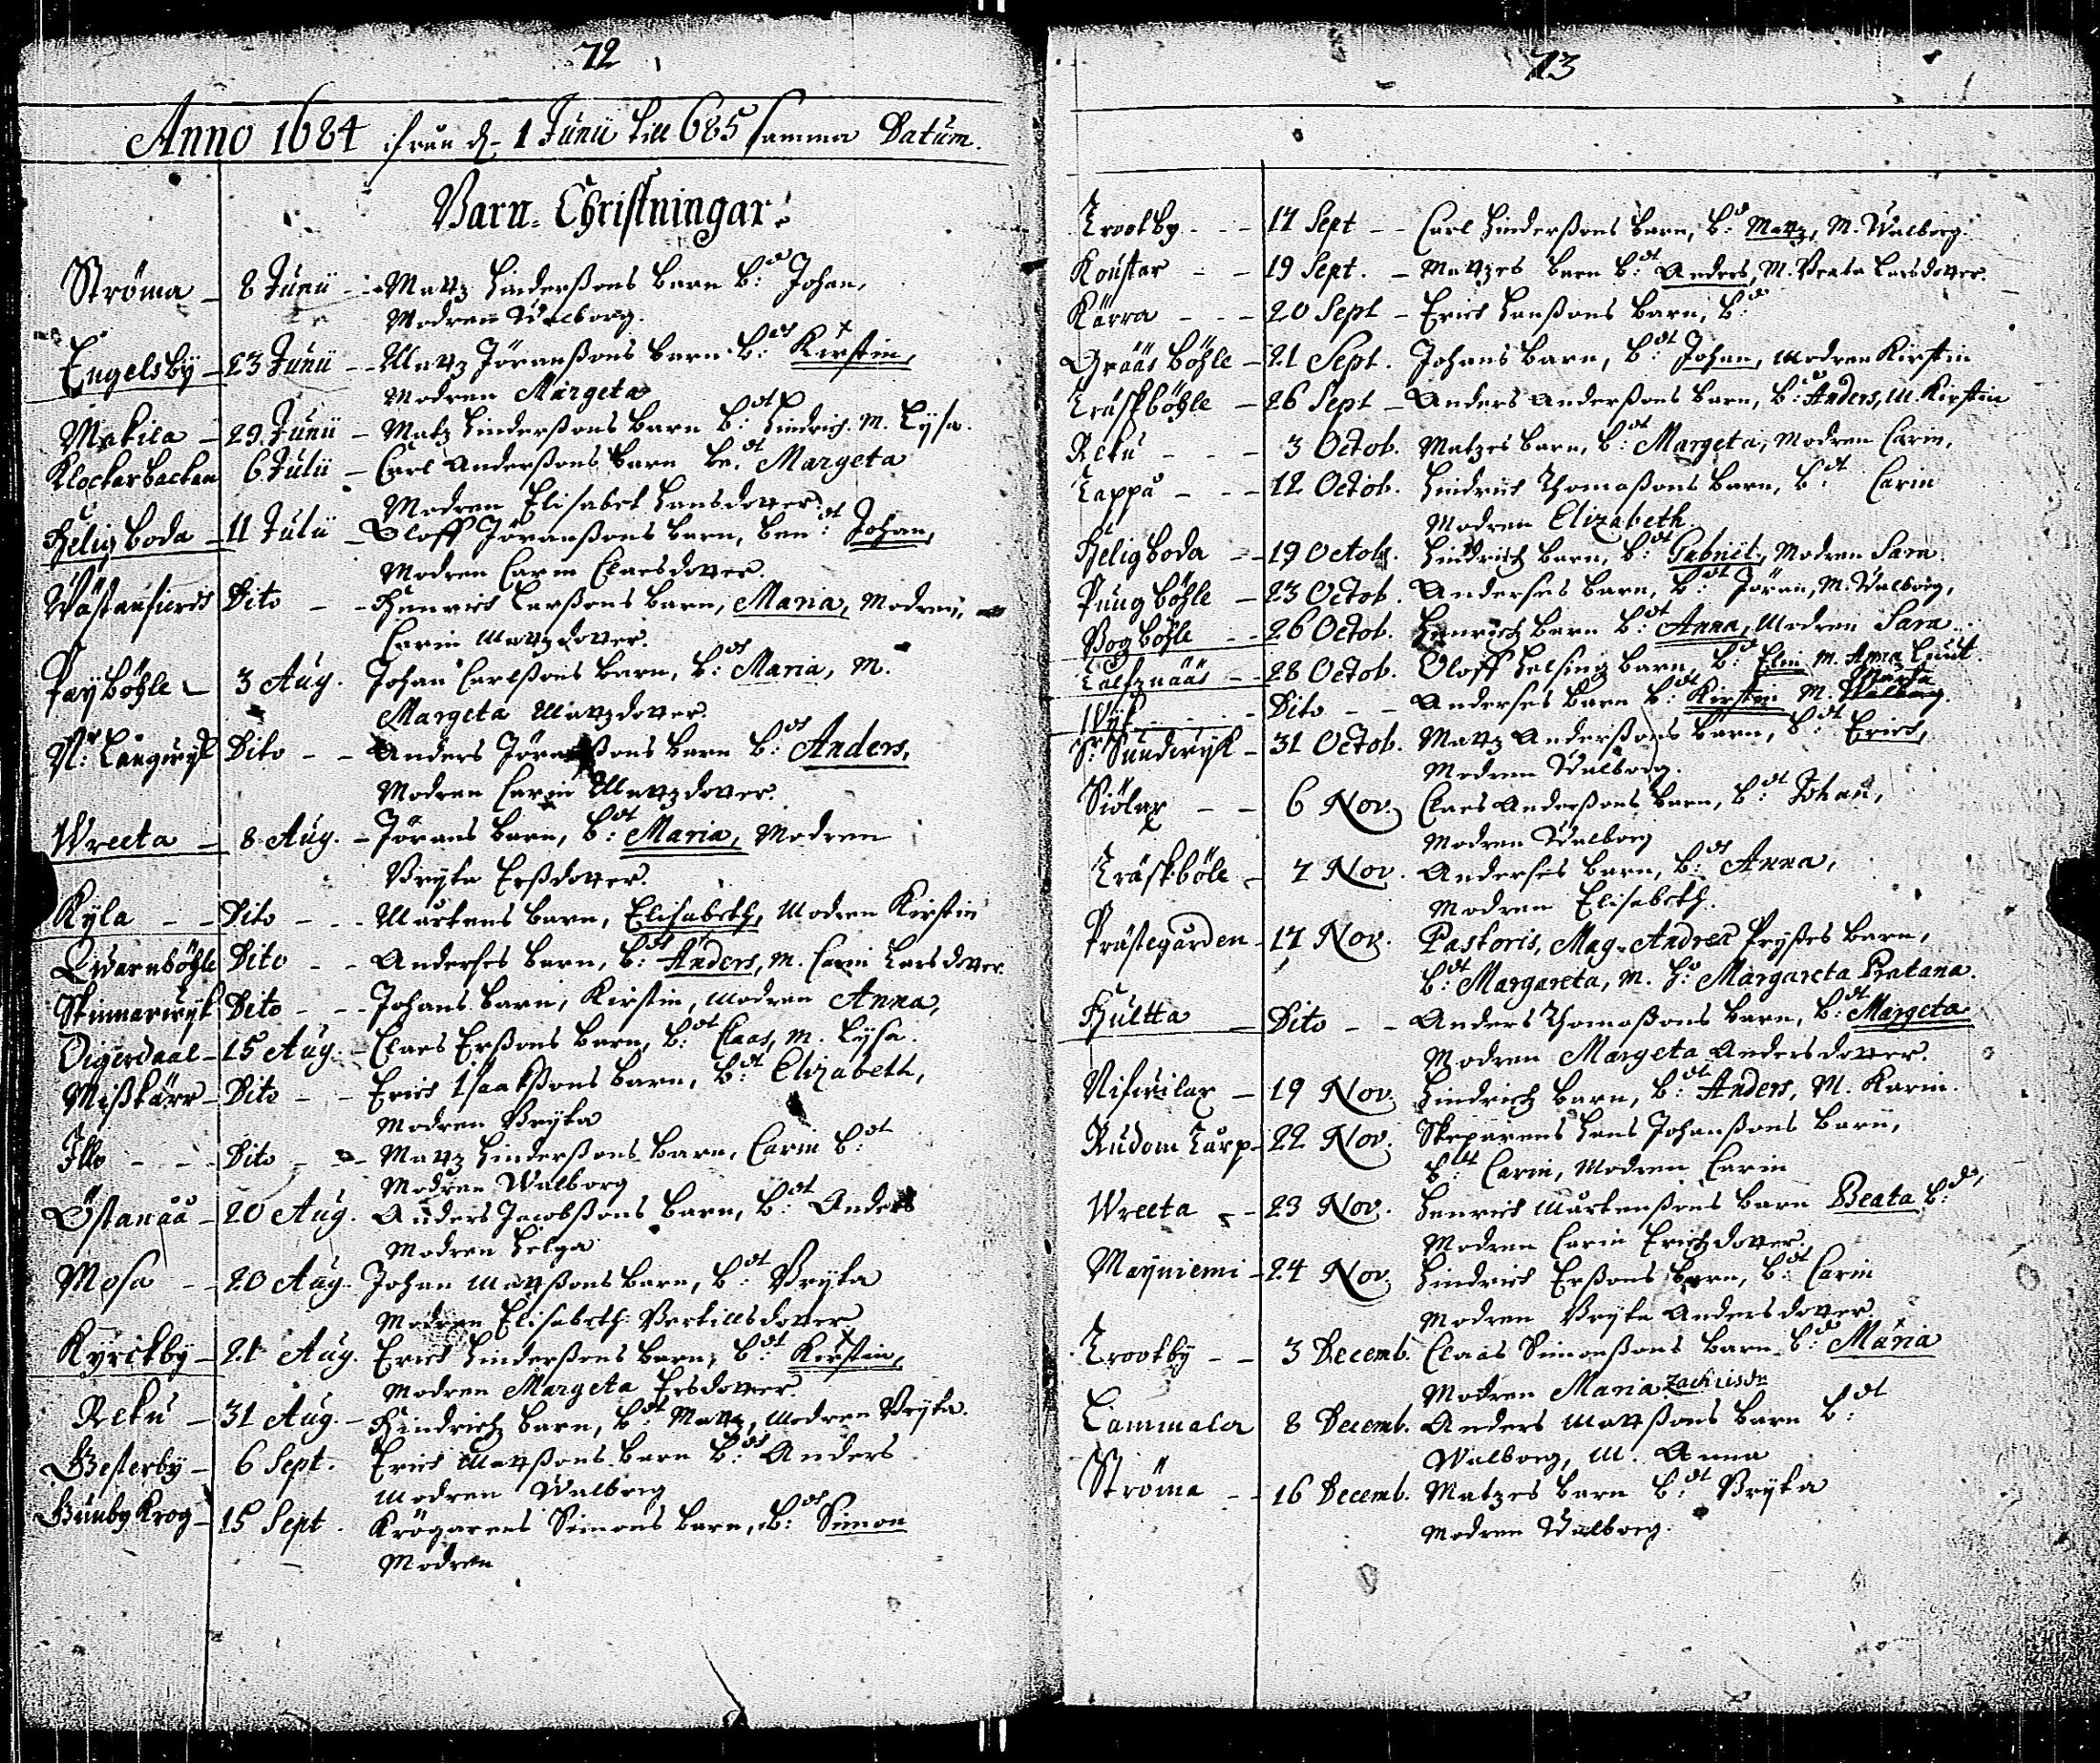 72
Anno 1684 ifrån d. 1 Junii till 685 samma Datum.
Barn-Christningar.
Ströma - 8 Junii - Mattz Hinderßons barn b:d Johan,
Modren Walborg.
Engelsby - 23 Junii - Mattz Jöranßons barn b:dt Kirstin,
Modren Margeta
Makila - 29 Junii - Matz Hinderßons barn b:dt Hindrich. M. Lysa.
Klockarbacken 6 Julii - Carl Anderßons barn be:dt Margeta
Modren Elisabet Hansdotter
Heligboda - 11 Julii - Oloff Jöranßons barn, ben:dt Johan,
Modren Carin Claesdotter.
Wästanfierd Dito - - Hinrich Larßons barn, Maria, Modren,
Carin Mattzdotter.
Payböhle - 3 Aug. Johan Carlßons barn, b:dt Maria, M.
Margeta Mattzdotter.
N: Långwyk Dito - - Anders Jöranßons barn b:dt Anders,
Modren Carin Mattzdotter.
Wreeta - 8 Aug. - Jörans barn, b:dt Maria, Modren
Bryta Erßdotter.
Kyla - - Dito - - Mårtens barn, Elisabeth, Modren Kirstin
Qwarnböhle Dito - - Anderses barn, b:dt Anders, M. Carin Larsdotter.
Skinnarwyk Dito - - Johans barn, Kirstin, Modren Anna,
Öigerdaal - 15 Aug. - Claes Erßons barn, b:dt Claas, M. Lysa.
Mißkärr - Dito - - Erich Isaakßons barn, b:dt Elizabeth,
Modren Bryta
Illo - - - Dito - - - Mattz Hinderßons barn, Carin b:dt
Modren Walborg
Östanåå - 20 Aug. Anders Jacobßons barn, b:dt Anders
Modren Helga
Mosa - - 20 Aug. Johan Mattßons barn, b:dt Bryta
Modren Elisabeth Bertillsdotter
Kyrckby - 21 Aug. Erich Hinderßons barn, b:dt Kirstin,
Modren Margeta Ersdotter.
Reku - 31 Aug. - Hindrichz barn, b:dt Mattz, Modren Bryta.
Gesterby - 6 Sept. Erich Mattßons barn b:dt Anders
Modren Walborg
Gunby krog - 15 Sept. Krögarens Simons barn, b:dt Simon
Modren
73
Trootby - - - 17 Sept - - Carl Hinderßons barn, b:d Mattz, M. Walborg.
Konstar - - 19 Sept. - Mattzes barn b:dt Anders, M. Beata Larsdotter.
Kärra - - - 20 Sept - Erich Hanßons barn, b:d
Gräsböhle - 21 Sept. Johans barn, b:dt Johan, Modren Kirstin
Träskböhle - 26 Sept - Anders Anderßons barn, b:d Anders, M. Kirstin
Reku - - - 3 Octob. Matzes barn, b:dt Margeta, Modren Carin,
Lappå - - - 12 Octob. Hindrich Thomaßons barn, b:dt Carin
Modren Elizabeth.
Heligboda - - 19 Octob. Hindrich barn, b:dt Gabriel, Modren Sara.
Pungböhle - 23 Octob. Anderses barn, b:dt Jöran, M. Walborg,
Bogböhle - - 26 Octob. Henrichz barn b:dt Anna, Modren Sara.
Kalfznääs - - 28 Octob. Oloff Helsing barn, b:d Elin M. Anna Knut.
Wyk - - - Dito - - Anderses barn b:dt Kirstin M. Walborg.
Marta
S: Sundwyk - 31 Octob. Mattz Anderßons barn, b:dt Erich,
Modren Walborg.
Siölax - - 6 Nov. Claes Anderßons barn, b:dt Johan,
Modren Walborg
Träskböle - 7 Nov. Anderses barn, b:dt Anna,
Modren Elisabeth.
Prästegården - 17 Nov. Pastoris, Mag. Andreæ Pryßes barn,
b:dt Margareta, M. H:o Margareta Pratana.
Hultta - Dito - - Anders Thomaßons barn, b:dt Margeta
Modren Margeta Andersdotter.
Nifwilax - 19 Nov. Hindrich barn, b:dt Anders, M. Karin.
Rudom Tårp - 22 Nov. Skeparens Hans Johanßons barn,
b:dt Carin, Modren Carin
Wreeta - - 23 Nov. Henrich Mårtenßons barn Beata b:dt
Modren Carin Erichzdotter.
Mayniemi - 24 Nov. Hindrich Erßons barn, b:dt Carin
Modren Bryta Andersdotter
Trootby - - 3 Decemb. Claas Simonßons barn b:d Maria
Modren Maria Zachrisdr
Lammala 8 Decemb. Anders Mattßons barn b:dt
Walborg, M. Anna
Ströma - - 16 Decemb. Matzes barn b:dt Bryta
Modren Walborg.